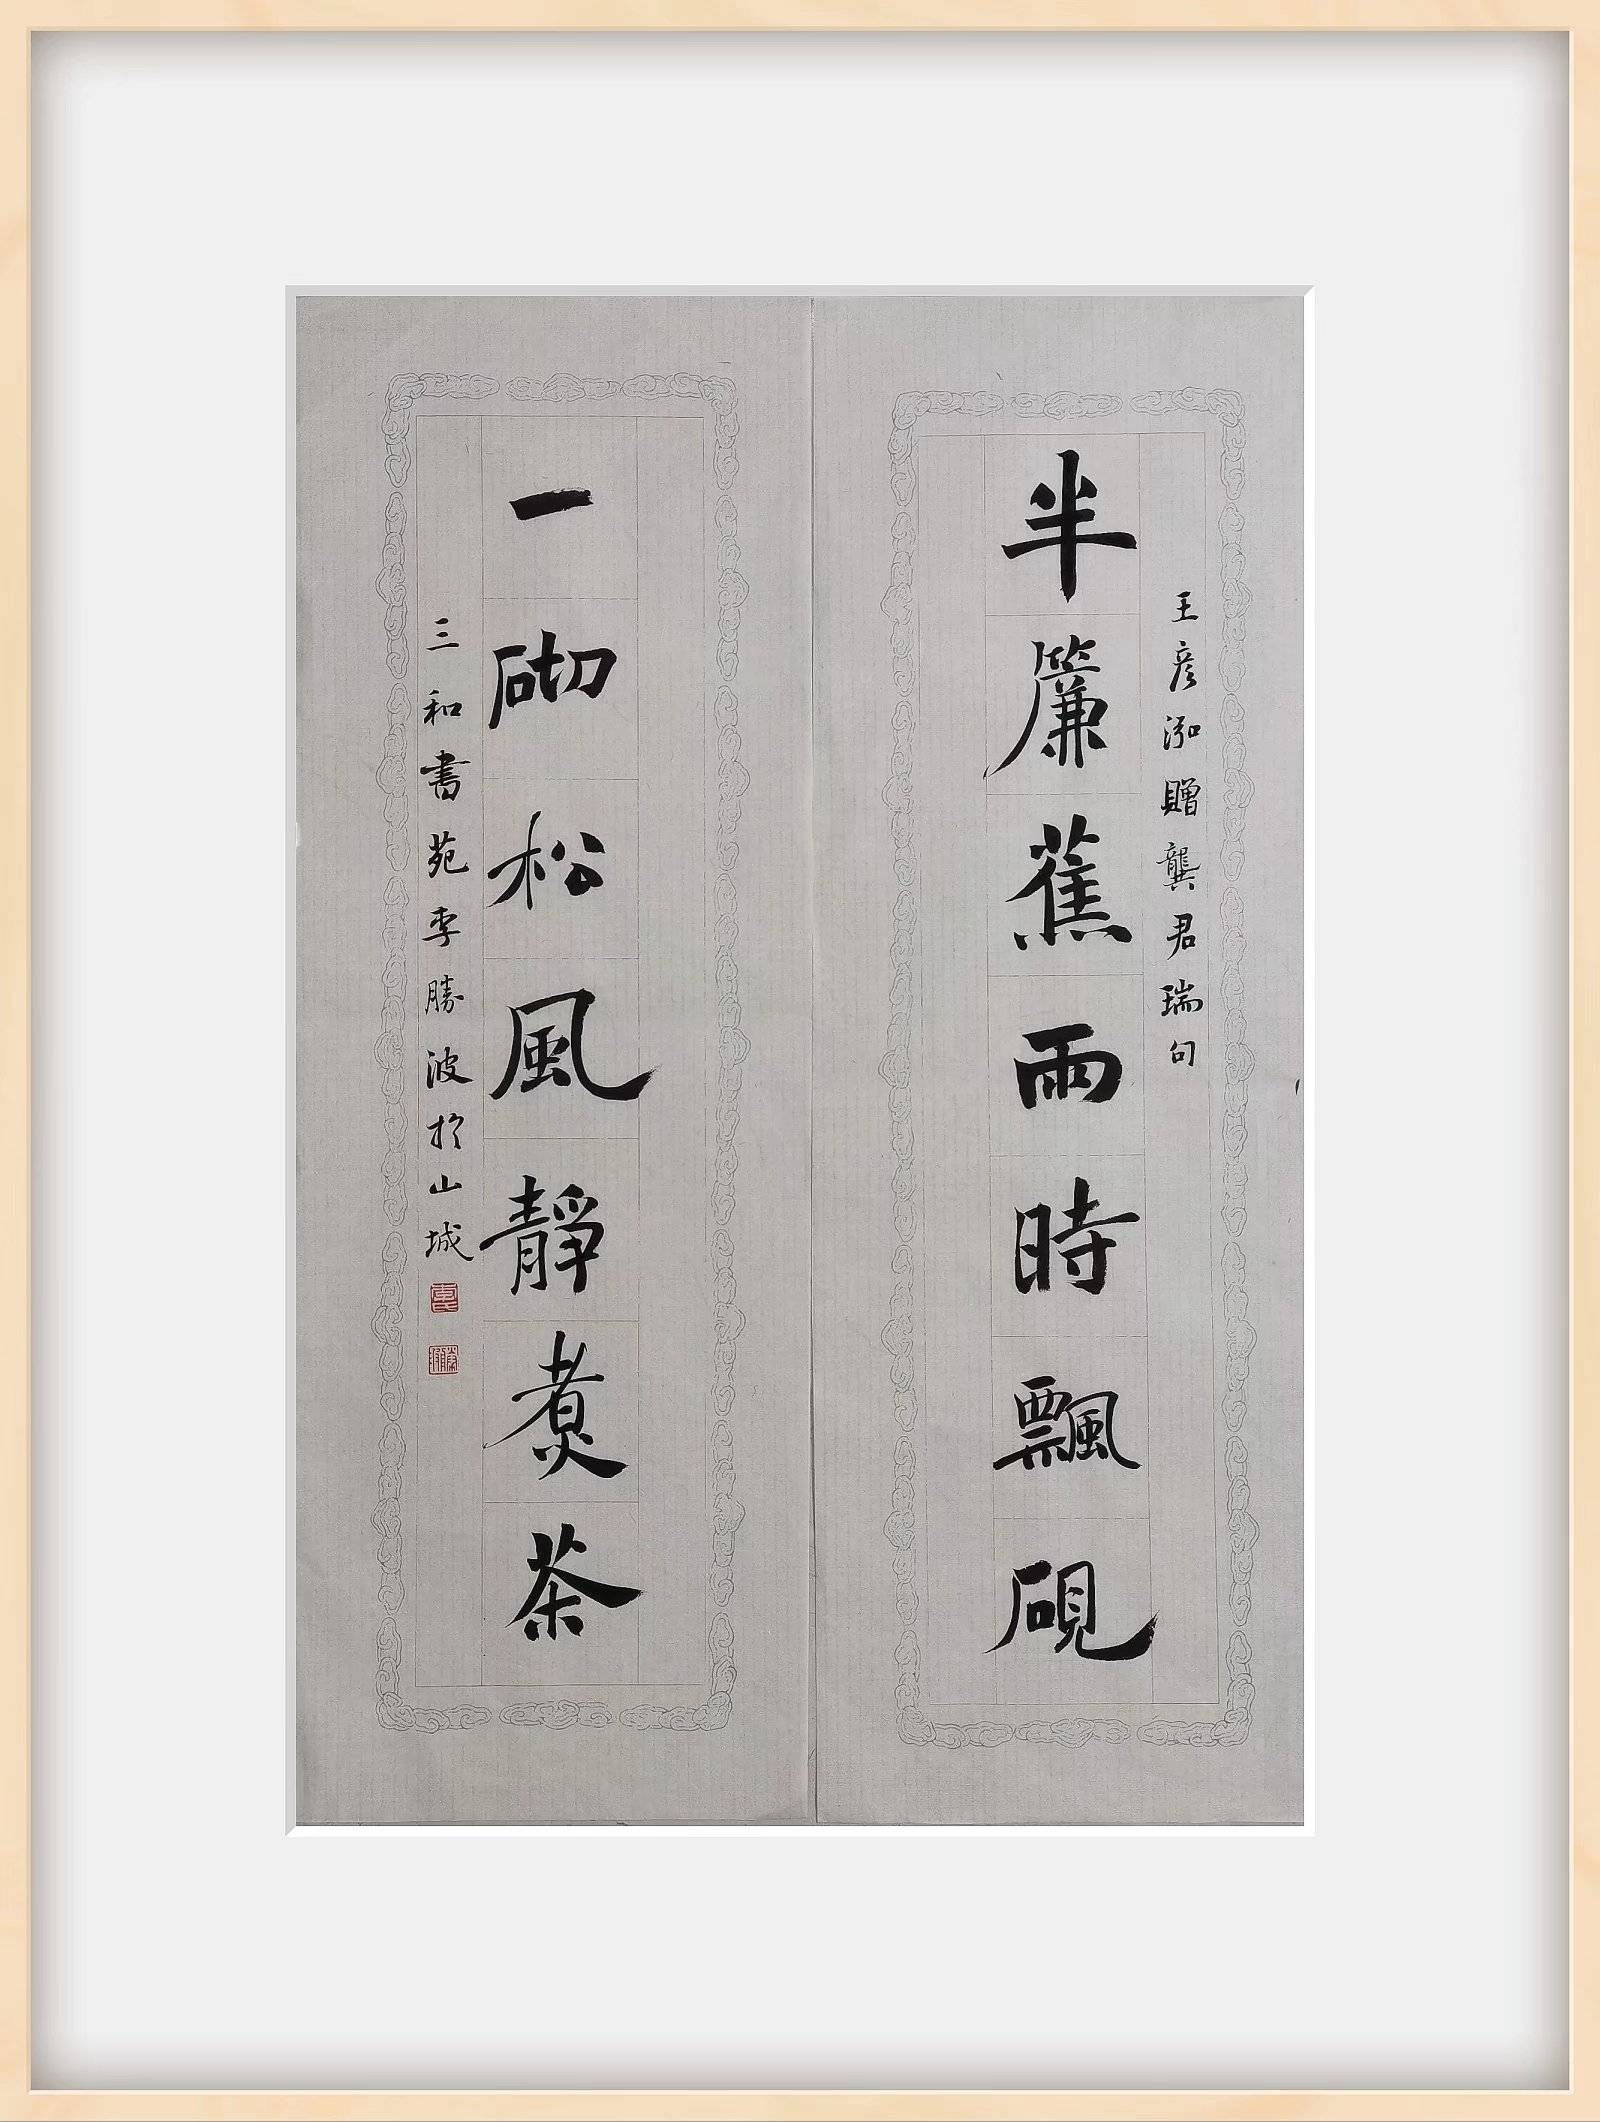 王彦泓贈龔君瑞句
半簾蕉雨時飄硯
一砌松風靜煮茶
三和書苑李勝波於山城